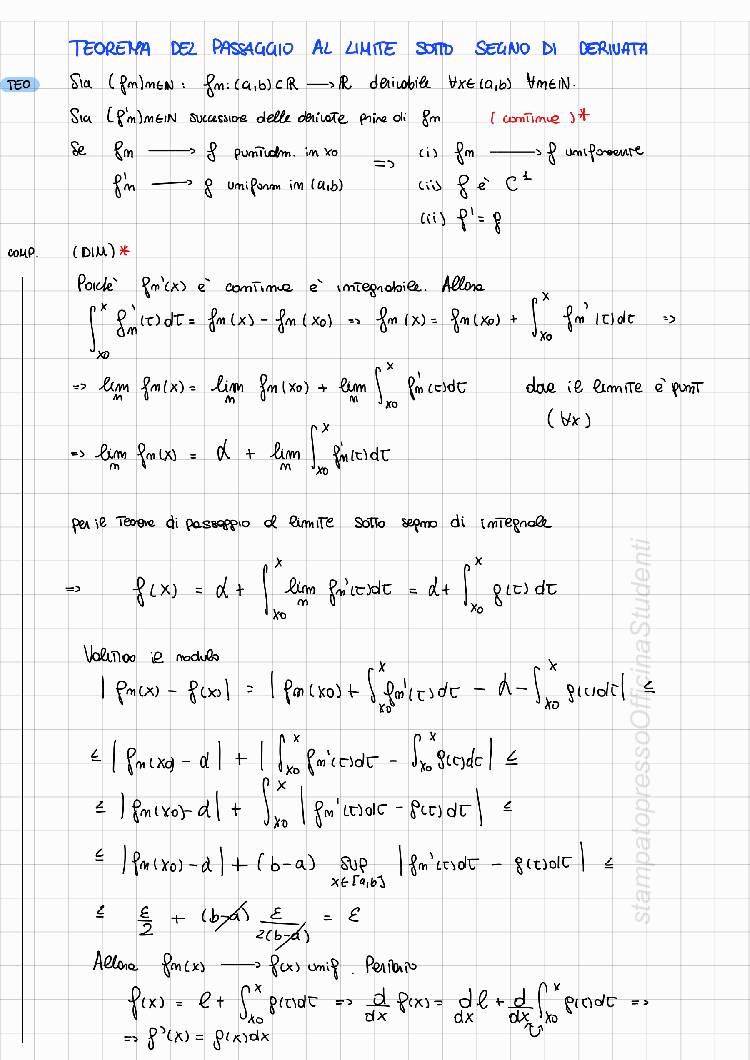 TEOREMA DEL PASSAGGIO AL LIMITE SOTTO SEGNO DI DERIVATA
TEO Sia (fn)n∈N : fn: (a,b)⊂R → R derivabile ∀x∈(a,b) ∀n∈N.
Sia (f'n)n∈N successione delle derivate prime di fn (continue)*
Se fn → f puntualm. in x0 => (i) fn → f uniformente
f'n → g uniform in (a,b) (ii) f è C¹
(iii) f' = g
COMP. (DIM)*
Poichè fn'(x) è continua è integrabile. Allora
∫_{x0}^{x} fn'(τ)dτ = fn(x) - fn(x0) => fn(x) = fn(x0) + ∫_{x0}^{x} fn'(τ)dτ =>
=> lim_n fn(x) = lim_n fn(x0) + lim_n ∫_{x0}^{x} fn'(τ)dτ dove il limite è punt
(∀x)
=> lim_n fn(x) = α + lim_n ∫_{x0}^{x} fn'(τ)dτ
per il Teorema di passaggio al limite sotto segno di integrale
=> f(x) = α + ∫_{x0}^{x} lim_n fn'(τ)dτ = α + ∫_{x0}^{x} g(τ)dτ
Valutiamo il modulo
|fn(x) - f(x)| = |fn(x0) + ∫_{x0}^{x} fn'(τ)dτ - α - ∫_{x0}^{x} g(τ)dτ| ≤
≤ |fn(x0) - α| + |∫_{x0}^{x} fn'(τ)dτ - ∫_{x0}^{x} g(τ)dτ| ≤
≤ |fn(x0) - α| + ∫_{x0}^{x} |fn'(τ)dτ - g(τ)dτ| ≤
≤ |fn(x0) - α| + (b-a) sup_{x∈[a,b]} |fn'(τ)dτ - g(τ)dτ| ≤
≤ ε/2 + (b-a) ε/2(b-a) = ε
Allora fn(x) → f(x) unif. Pertanto
f(x) = l + ∫_{x0}^{x} g(τ)dτ => d/dx f(x) = d/dx l + d/dx ∫_{x0}^{x} g(τ)dτ =>
=> f'(x) = g(x)dx
stampatopressoOfficinaStudenti